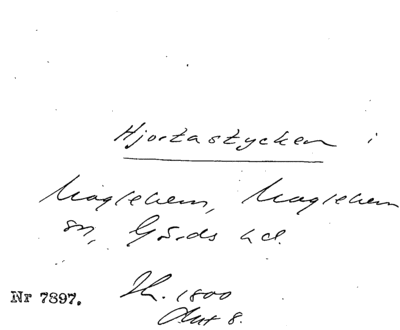 Hjortastycken i
Maglehem, Maglehem
sn, Gärds hd.
Nr 7897. Sk. 1800
Akt 8.